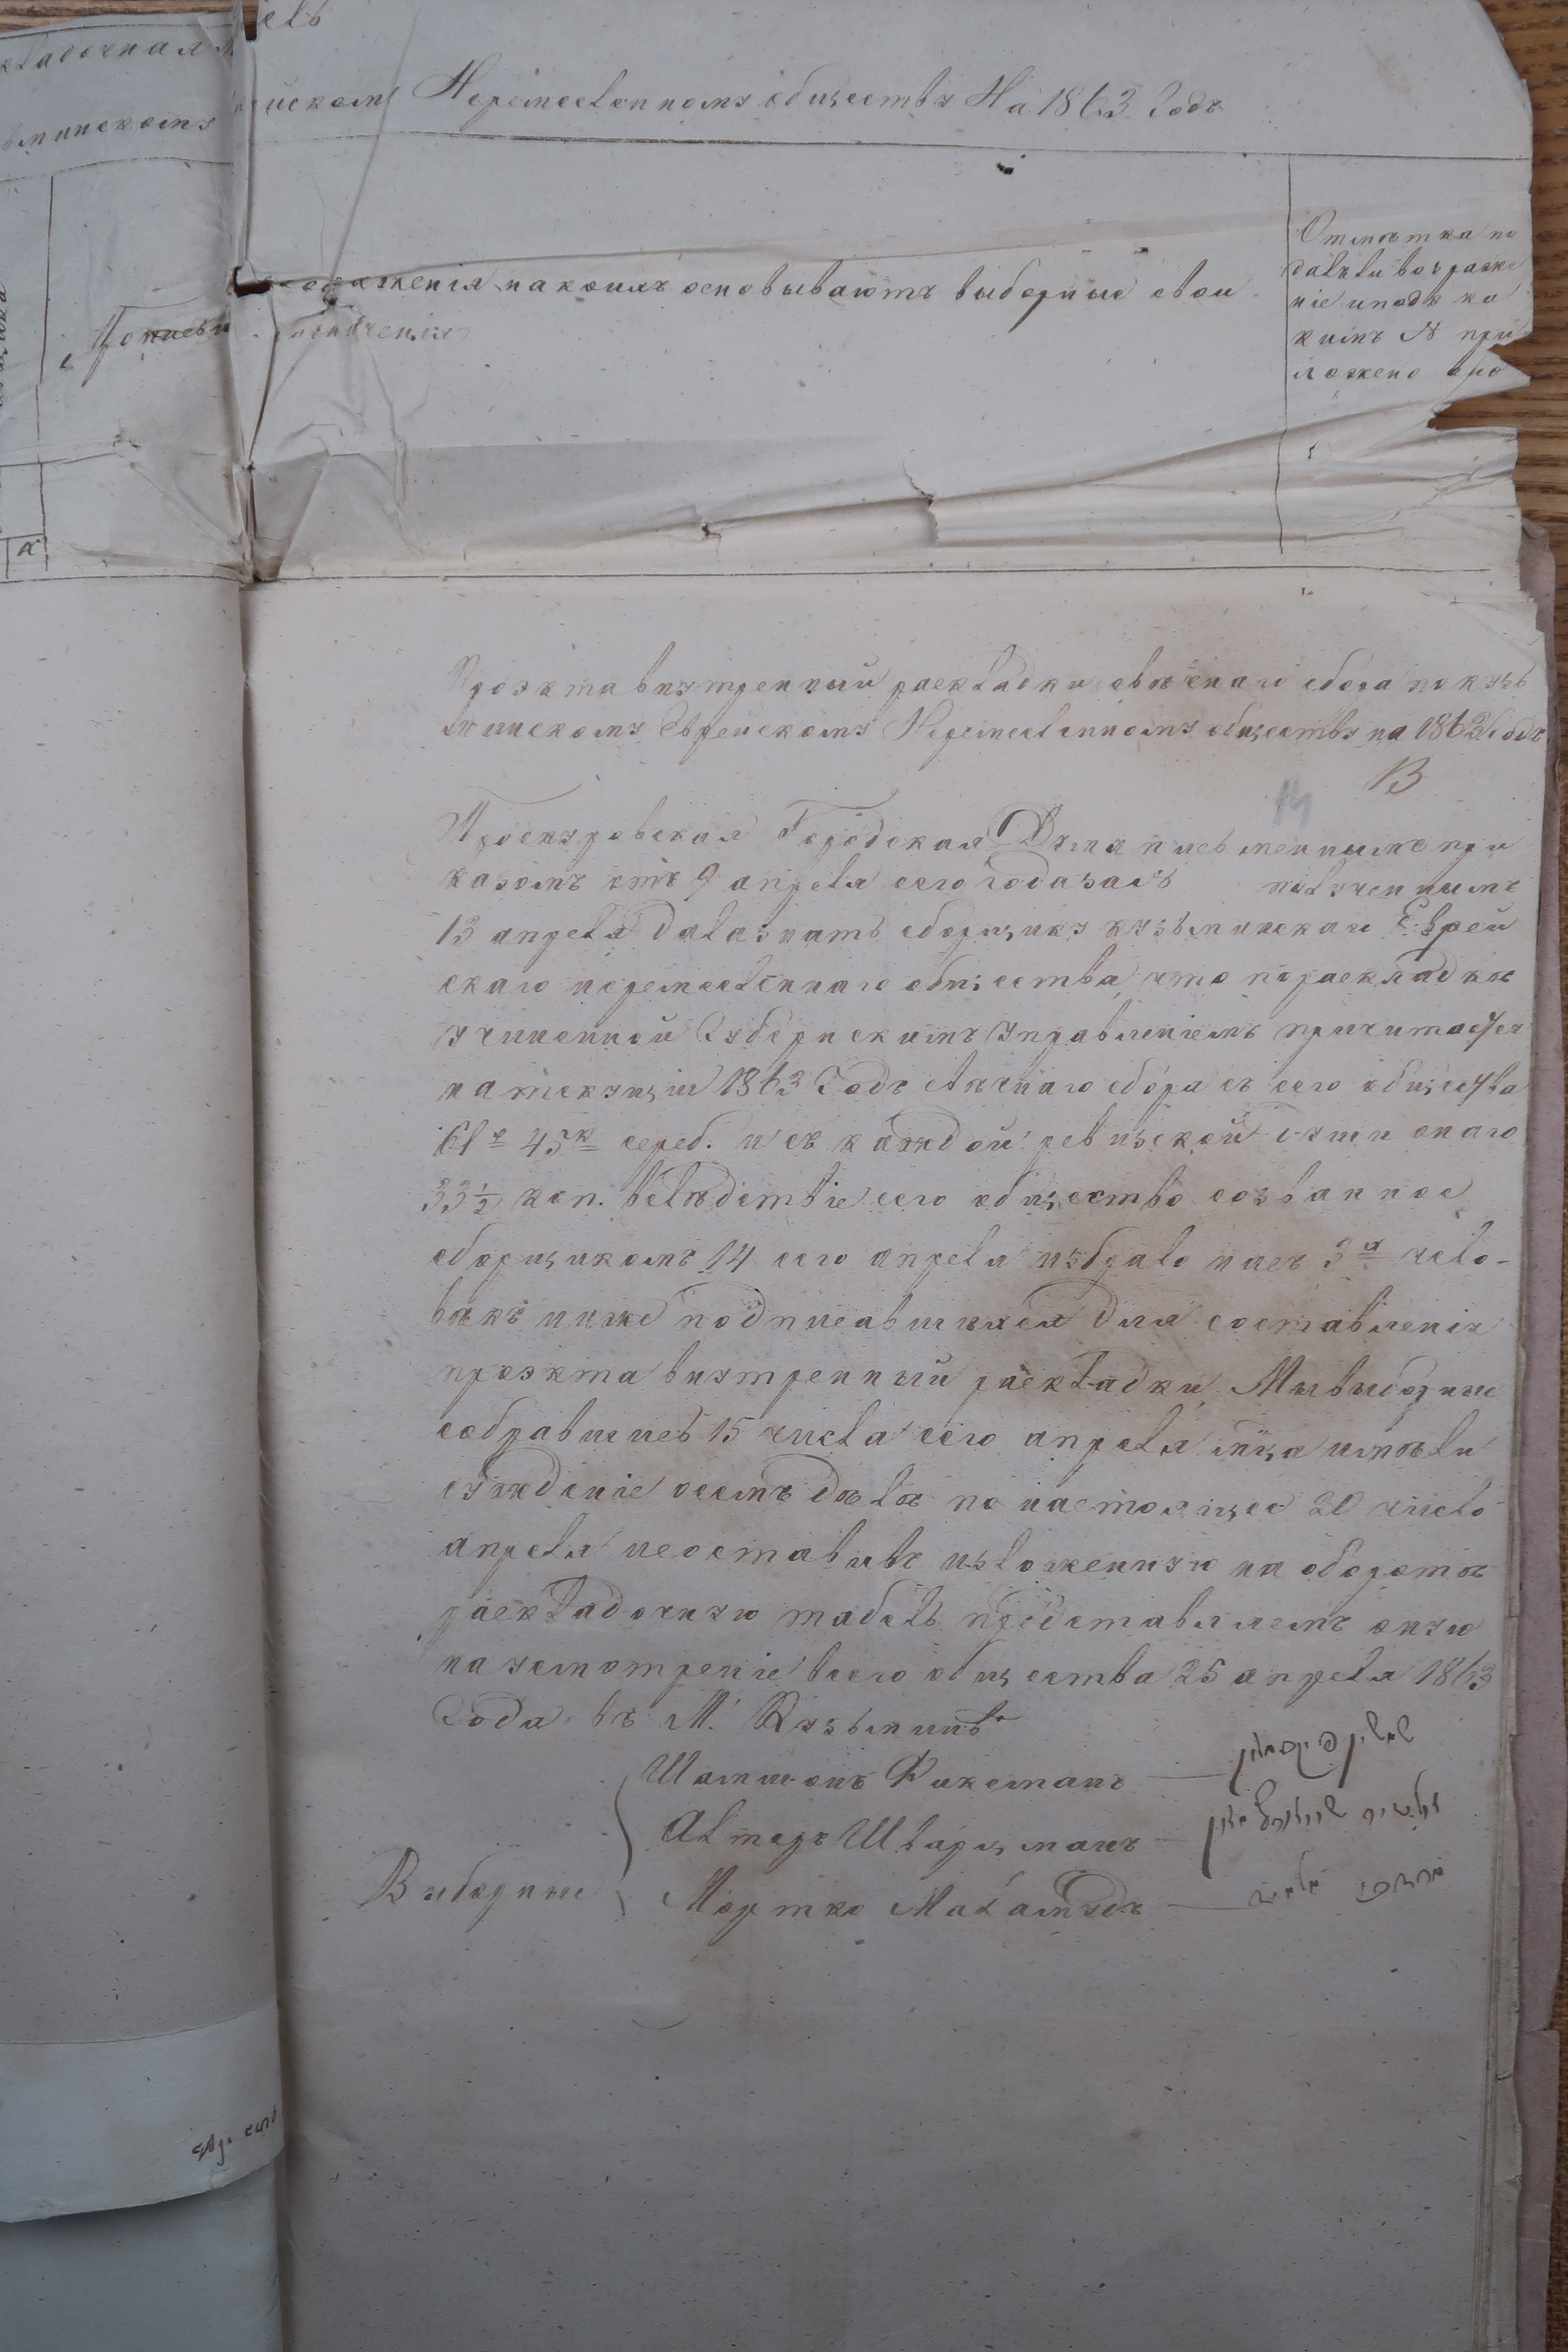 Еврейскомъ Неремесленному обществу На 1863 Годъ
соображенія на коихъ основываютъ выборные свои
назначенія
Отмѣтка по
дальли возраже
ніе и подъ ка
кимъ № при
ложено оно
Проэкта внутренный раскладки свѣчнаго сбора по кузь
минскому Еврейскому Неремесленному обществу на 1863 Годъ
В
Проскуровская Городская Дума письменнымъ при
казомъ отъ 9 апреля сего года за № полученнымъ
13 апреля дала знать сборщику кузьминскаго Еврей
скаго неремесленнаго общества, что по раскладкѣ
учиненной Губернскимъ управленіемъ причитается
на текущій 1863 Годъ свѣчнаго сбора съ сего общества
61 р 45 к сереб. и съ каждой ревизской души онаго
33 ½ коп. вслѣдствіе сего общество созванное
сборщикомъ 14 сего апреля избрало насъ 3 х чело-
вѣкъ ниже подписавшихся для составленія
проэкта внутренный раскладки, Мы выборные
собравшись 15 числа сего апреля мца имѣли
сужденіе о семъ дѣлѣ по настоящее 20 число
апреля и составивъ изложенную на оборотѣ
раскладочную табель представляемъ оную
на усмотреніе всего общества 25 апреля 1863
Года въ М. Кузьминѣ
Шамшонъ Фиксманъ
Алтеръ Шварцманъ
Выборные Мортко Маламудъ